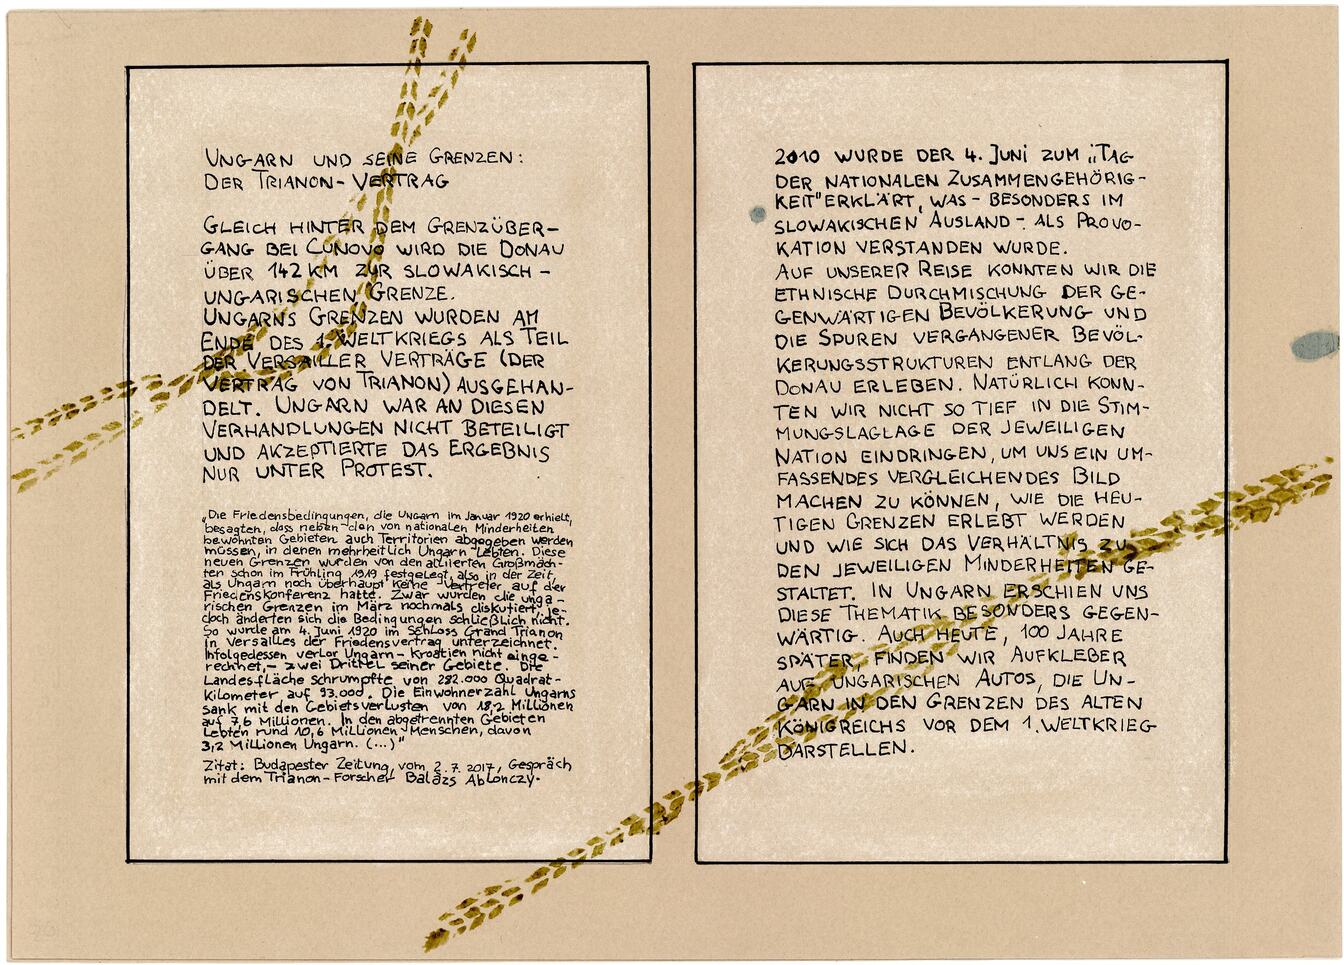 UNGARN UND SEINE GRENZEN:
DER TRIANON-VERTRAG
GLEICH HINTER DEM GRENZÜBER-
GANG BEI CUNOVO WIRD DIE DONAU
ÜBER 142 KM ZUR SLOWAKISCH-
UNGARISCHEN GRENZE.
UNGARNS GRENZEN WURDEN AM
ENDE DES 1. WELTKRIEGS ALS TEIL
DER VERSAILLER VERTRÄGE (DER
VERTRAG VON TRIANON) AUSGEHAN-
DELT. UNGARN WAR AN DIESEN
VERHANDLUNGEN NICHT BETEILIGT
UND AKZEPTIERTE DAS ERGEBNIS
NUR UNTER PROTEST.
„Die Friedensbedingungen, die Ungarn im Januar 1920 erhielt,
besagten, dass neben den von nationalen Minderheiten
bewohnten Gebieten auch Territorien abgegeben werden
müssen, in denen mehrheitlich Ungarn lebten. Diese
neuen Grenzen wurden von den alliierten Großmäch-
ten schon im Frühling 1919 festgelegt, also in der Zeit,
als Ungarn noch überhaupt keine Vertreter auf der
Friedenskonferenz hatte. Zwar wurden die unga-
rischen Grenzen im März nochmals diskutiert, je-
doch änderten sich die Bedingungen schließlich nicht.
So wurde am 4. Juni 1920 im Schloss Grand Trianon
in Versailles der Friedensvertrag unterzeichnet.
Infolgedessen verlor Ungarn - Kroatien nicht einge-
rechnet, - zwei Drittel seiner Gebiete. Die
Landesfläche schrumpfte von 282.000 Quadrat-
kilometer auf 93.000. Die Einwohnerzahl Ungarns
sank mit den Gebietsverlusten von 18,2 Millionen
auf 7,6 Millionen. In den abgetrennten Gebieten
lebten rund 10,6 Millionen Menschen, davon
3,2 Millionen Ungarn. (...)"
Zitat: Budapester Zeitung, vom 2.7.2017, Gespräch
mit dem Trianon-Forscher Balázs Ablonczy.
2010 WURDE DER 4. JUNI ZUM „TAG
DER NATIONALEN ZUSAMMENGEHÖRIG-
KEIT" ERKLÄRT, WAS - BESONDERS IM
SLOWAKISCHEN AUSLAND - ALS PROVO-
KATION VERSTANDEN WURDE.
AUF UNSERER REISE KONNTEN WIR DIE
ETHNISCHE DURCHMISCHUNG DER GE-
GENWÄRTIGEN BEVÖLKERUNG UND
DIE SPUREN VERGANGENER BEVÖL-
KERUNGSSTRUKTUREN ENTLANG DER
DONAU ERLEBEN. NATÜRLICH KONN-
TEN WIR NICHT SO TIEF IN DIE STIM-
MUNGSLAGLAGE DER JEWEILIGEN
NATION EINDRINGEN, UM UNS EIN UM-
FASSENDES VERGLEICHENDES BILD
MACHEN ZU KÖNNEN, WIE DIE HEU-
TIGEN GRENZEN ERLEBT WERDEN
UND WIE SICH DAS VERHÄLTNIS ZU
DEN JEWEILIGEN MINDERHEITEN GE-
STALTET. IN UNGARN ERSCHIEN UNS
DIESE THEMATIK BESONDERS GEGEN-
WÄRTIG. AUCH HEUTE, 100 JAHRE
SPÄTER, FINDEN WIR AUFKLEBER
AUF UNGARISCHEN AUTOS, DIE UN-
GARN IN DEN GRENZEN DES ALTEN
KÖNIGREICHS VOR DEM 1. WELTKRIEG
DARSTELLEN.